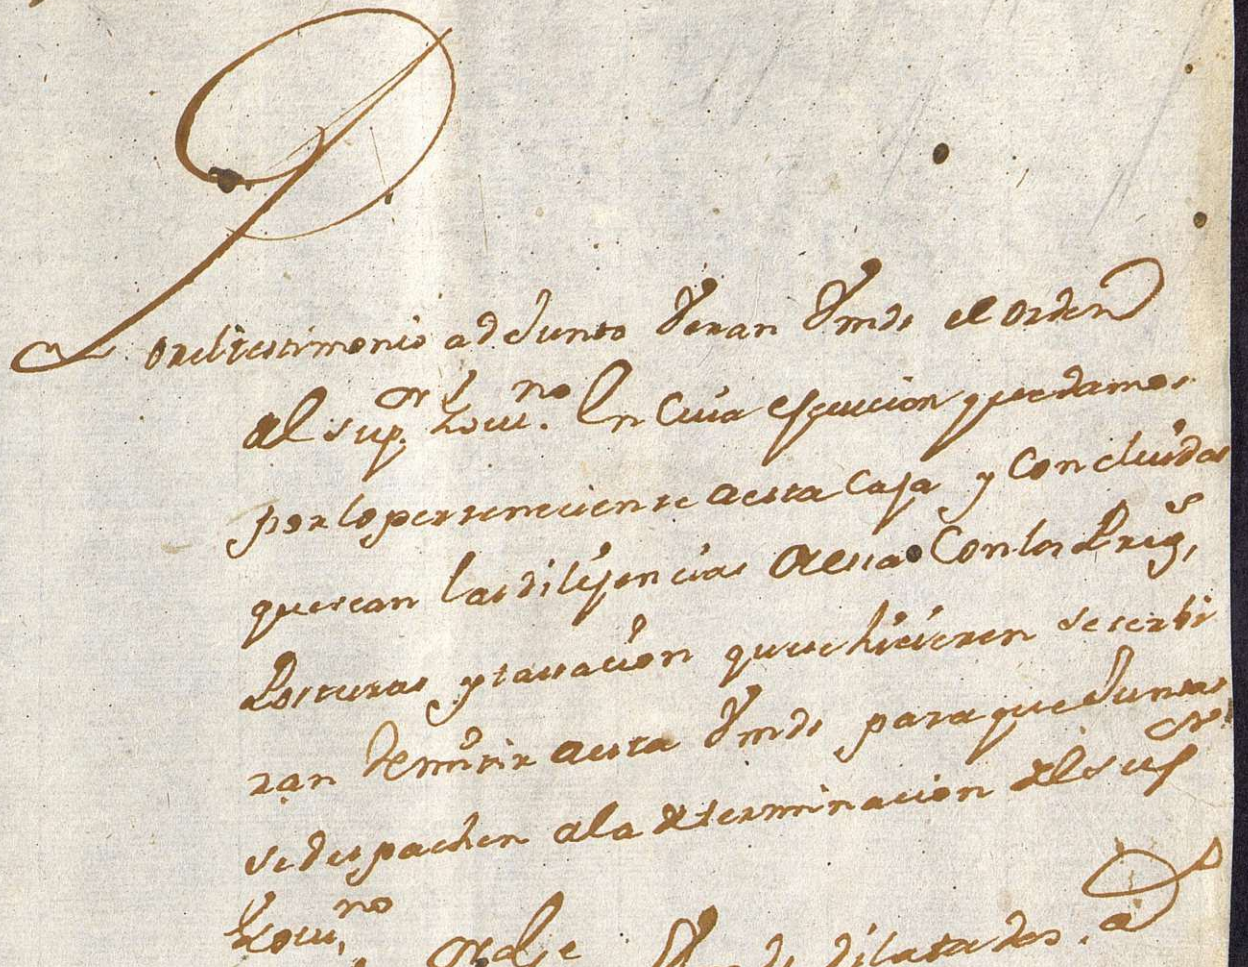 Por el testimonio adjunto veran Vmds el orden
del sup.or Govi.no En cuia esecucion quedamos
por lo perteneciente aesta Caja y Concluidas
que sean las dilijencias deesta Con los Preg.s
Posturas y tassacion quese hicieren se serbi
ran Remitir aesta Vmds para que Juntas
se despachen ala determinacion del sup.or
Govi.no
dilatados. a